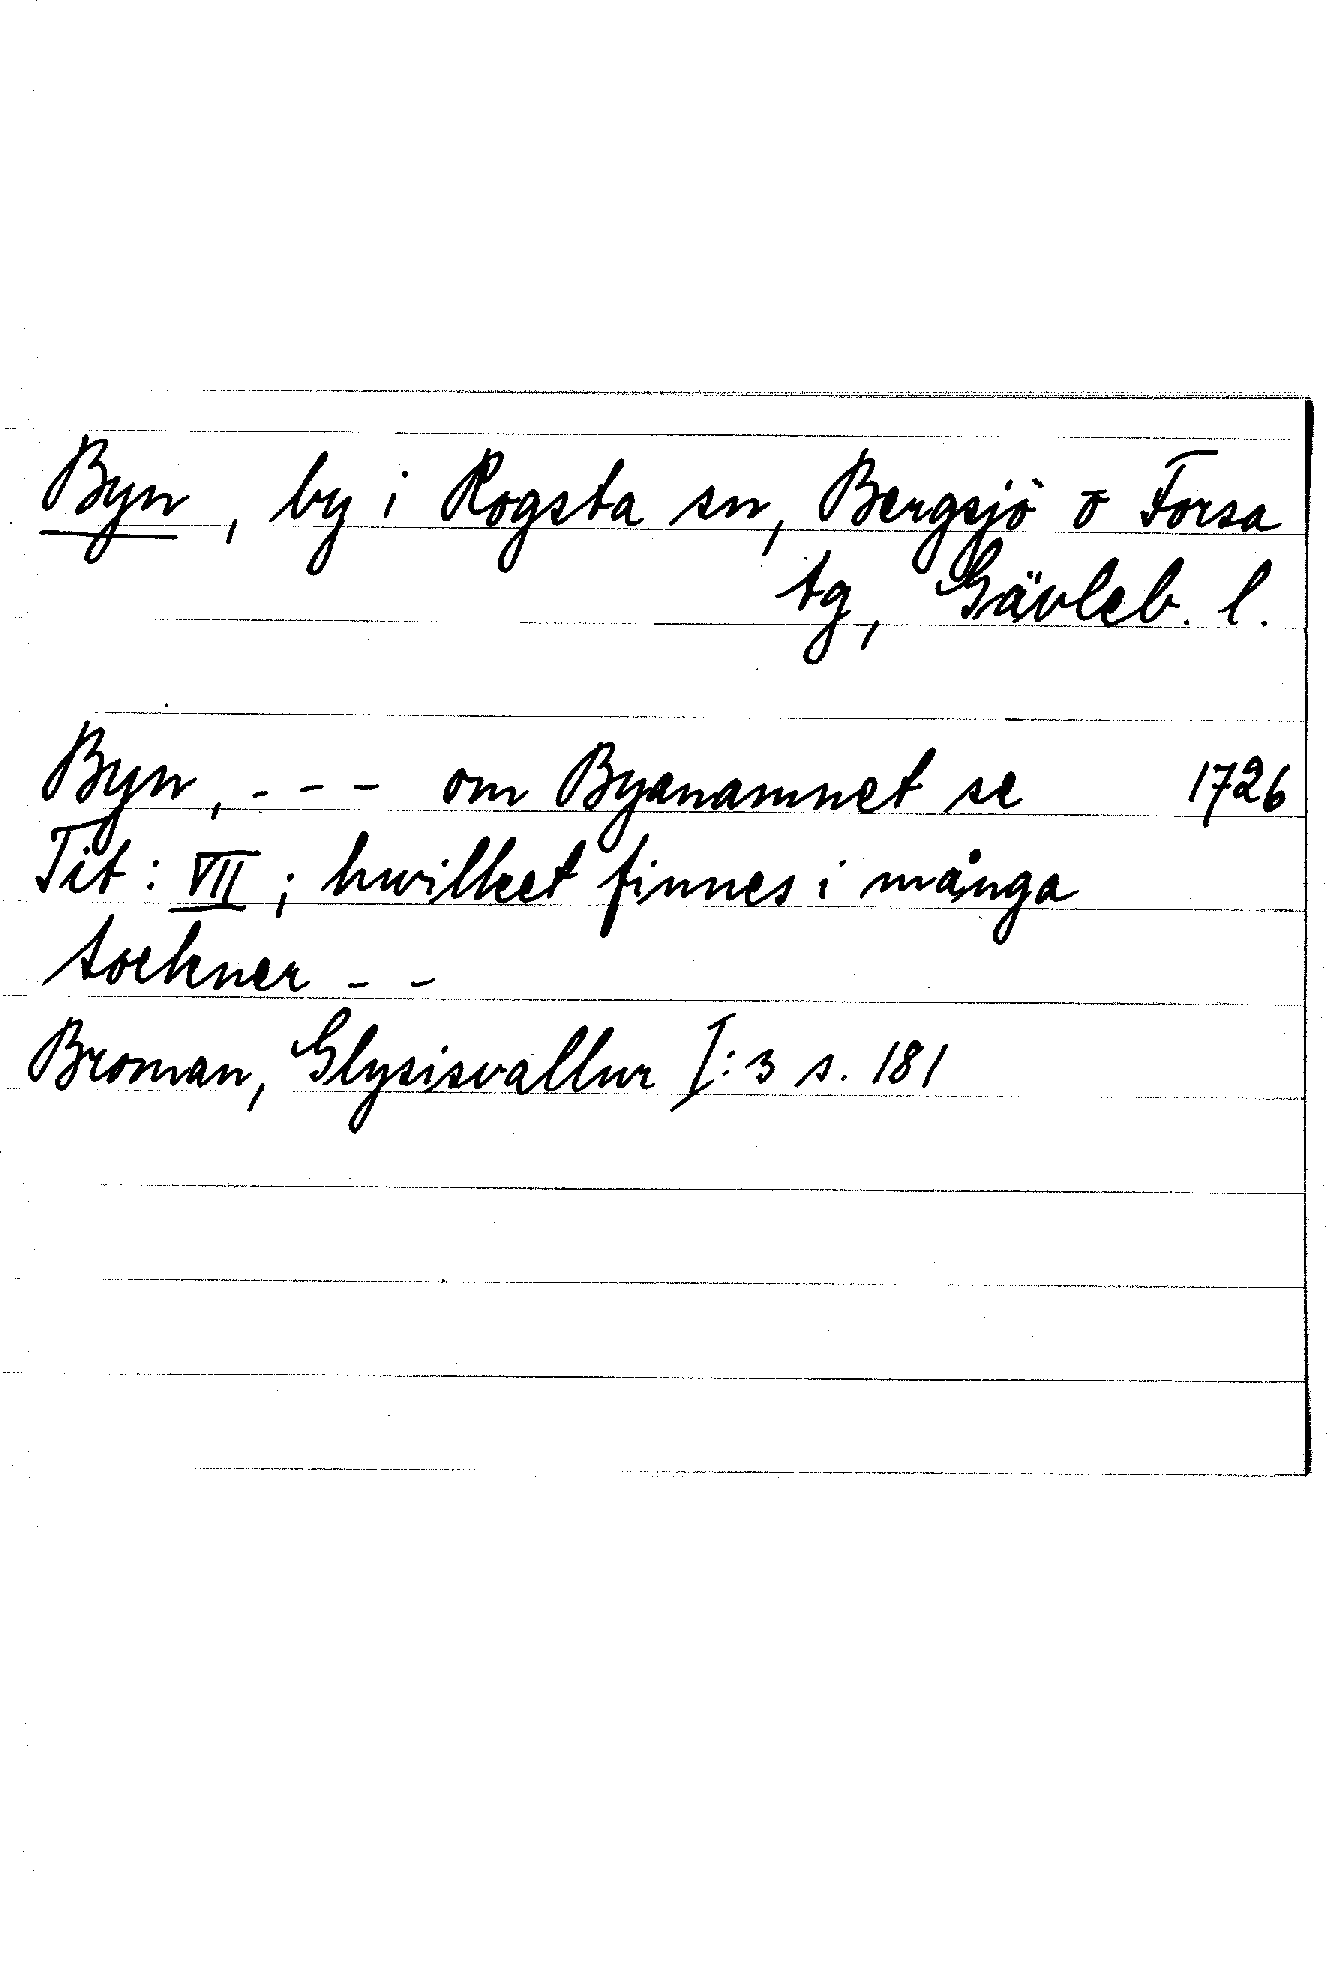 Byn, by i Rogsta sn, Bergsjö o Forsa
tg, Gävleb. l.
Byn, - - - om Byanamnet se 1726
Tit: VII; hwilket finnes i många
sochner - -
Broman, Glysisvallur I:3 s. 181